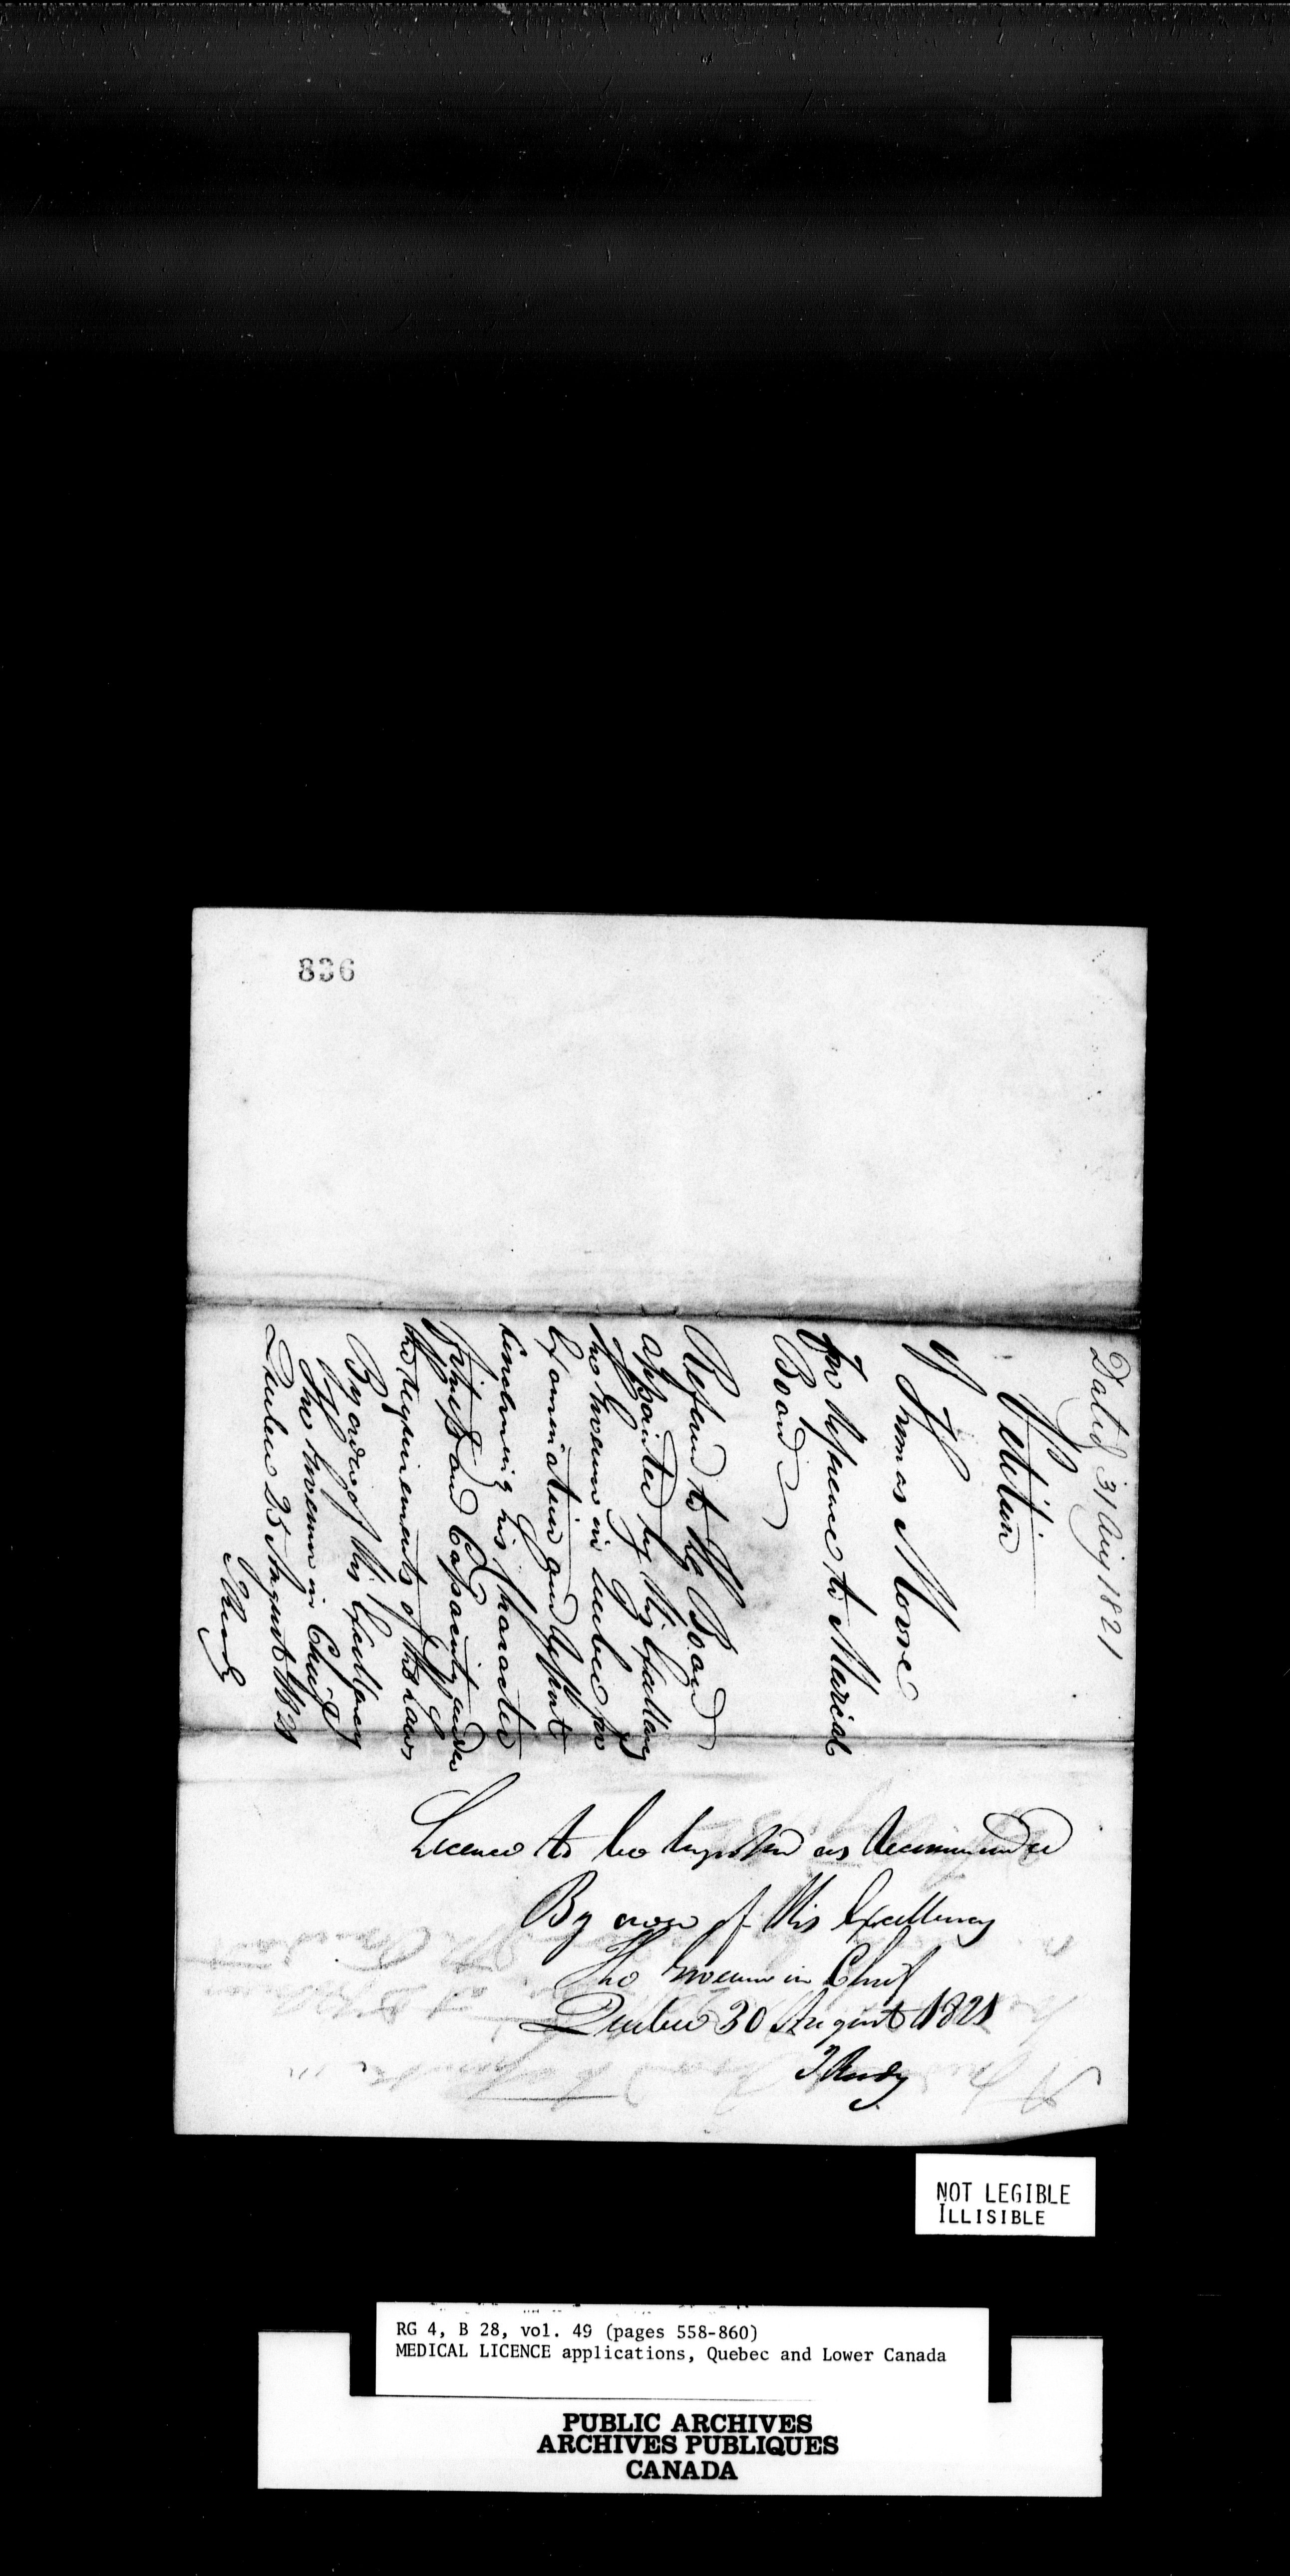 836
Dated 31 Aug 1821
Petition
of
Thomas Morse
for reference to Medical
Board
Referred to the Board
appointed by His Excellency
the Governor in Quebec for
Examination and Report
concerning his Character
Fitness and Capacity under
the requirements of the Laws
By order of His Excellency
The Governor in Chief
Quebec 25 August 1821
Licence to be as recommended
By order of His Excellency
The Governor in Chief
Quebec 30 August 1821
NOT LEGIBLE
ILLISIBLE
RG 4, B 28, vol. 49 (pages 558-860)
MEDICAL LICENCE applications, Quebec and Lower Canada
PUBLIC ARCHIVES
ARCHIVES PUBLIQUES
CANADA